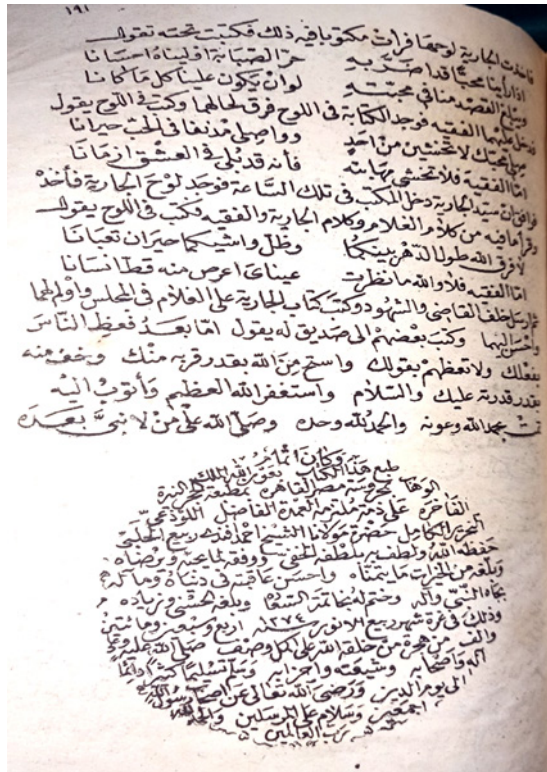 ١٩١
فاخذت الجارية لوحها فقرأت مكتوبا فيه ذلك فكتبت تحته تقول
اذا رأينا محبا قد اضر به حر الصبابة اوليناه احسانا
ويبلغ القصد منا في محبته لو ان يكون علينا كل ما كانا
فدخل عليهما الفقيه فوجد الكتابة في اللوح فرق لحالهما وكتب في اللوح يقول
صلي محبك لا تخشين من احد وواصلي مدنفا في الحب حيرانا
اما الفقيه فلا تخشى مهابته فانه قد بلي في العشق ازمانا
فوافق ان سيد الجارية دخل المكتب في تلك الساعة فوجد لوح الجارية فأخذه
وقرأ ما فيه من كلام الغلام وكلام الجارية والفقيه فكتب في اللوح يقول
لا فرق الله طول الدهر بينكما وظل واشيكما حيران تعبانا
اما الفقيه فلا والله ما نظرت عيناي اعرص منه قط انسانا
ثم ارسل خلف القاضي والشهود وكتب كتاب الجارية على الغلام في المجلس واولم لهما
واحسن اليهما وكتب بعضهم الى صديق له يقول اما بعد فعظ الناس
بفعلك ولا تعظهم بقولك واستح من الله بقدر قربه منك وخف منه
بقدر قدرته عليك والسلام واستغفر الله العظيم وأتوب اليه
تم بحمد الله وعونه والحمد لله وحده وصلى الله على من لا نبي بعده
وكان اتمام
طبع هذا الكتاب بعون الله الملك
الوهاب بمحروسة مصر القاهرة بمطبعة الحجر النيرة
الفاخرة على ذمة ملتزمه العمدة الفاضل اللوذعي
النحرير الكامل حضرة مولانا الشيخ احمد افندي ربيع الحلبي
حفظه الله ولطف به بلطفه الخفي ووفقه لما يحبه ويرضاه
وبلغه من الخيرات ما يتمناه واحسن عاقبته في دنياه وماله
بجاه النبي وآله وختم له بخاتمة السعادة وبلغه الحسنى وزياده
وذلك في غرة شهر ربيع الانور سنة ١٢٧٤ اربع وسبعين ومائتين
والف من هجرة من خلقه الله على اكمل وصف صلى الله عليه وعلى
آله واصحابه وشيعته واحزابه وسلم تسليما كثيرا دائما
الى يوم الدين ورضي الله تعالى عن اصحاب رسول الله
اجمعين وسلام على المرسلين والحمد لله
رب العالمين